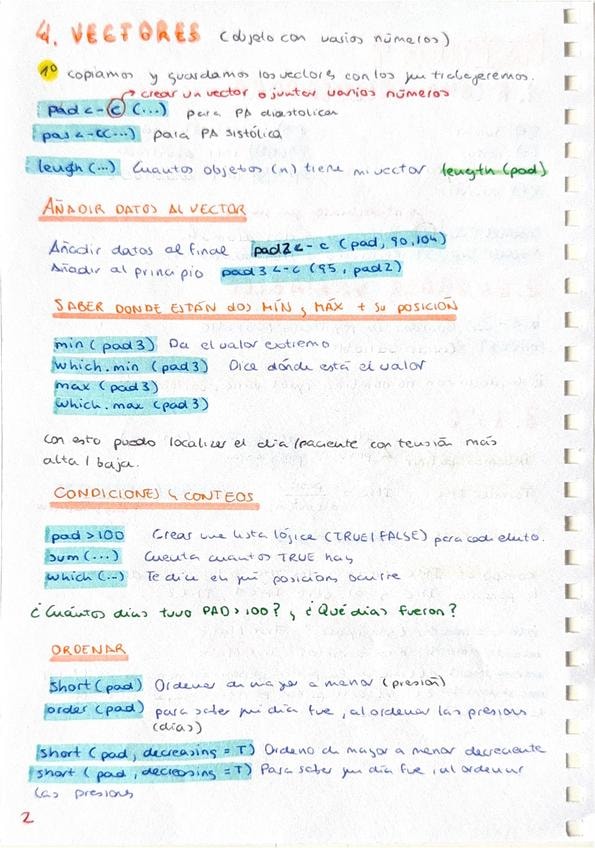 4. VECTORES (objeto con varios números)
1º copiamos y guardamos los vectores con los que trabajeremos.
crear un vector o juntar varios números
pad <- c (...) para PA diastolica
pas <- c(...) para PA sistólica
length (...) Cuantos objetos (n) tiene mi vector length (pad)
AÑADIR DATOS AL VECTOR
Añadir datos al final pad2 <- c (pad, 90,104)
Añadir al principio pad3 <- c (95, pad2)
SABER DONDE ESTÁN dos MÍN y MÁX + su POSICIÓN
min (pad3) Da el valor extremo
which.min (pad3) Dice dónde está el valor
max (pad3)
which.max (pad3)
Con esto puedo localizar el dia/paciente con tensión más
alta / baja.
CONDICIONES Y CONTEOS
pad > 100 Crear una lista lógica (TRUE/FALSE) para cada
sum (...) Cuenta cuantos TRUE hay
which (...) Te dice en qué posicions ocurre
¿Cuántos dias tuvo PAD > 100? y ¿Qué dias fueron?
ORDENAR
short (pad) Ordenar de mayor a menor (presión)
order (pad) para saber qui día fue, al ordenar las presions
(días)
short (pad, decreasing = T) Ordeno de mayor a menor decreciente
short (pad, decreasing = T) Para saber qui día fue, al ordenar
las presions
2